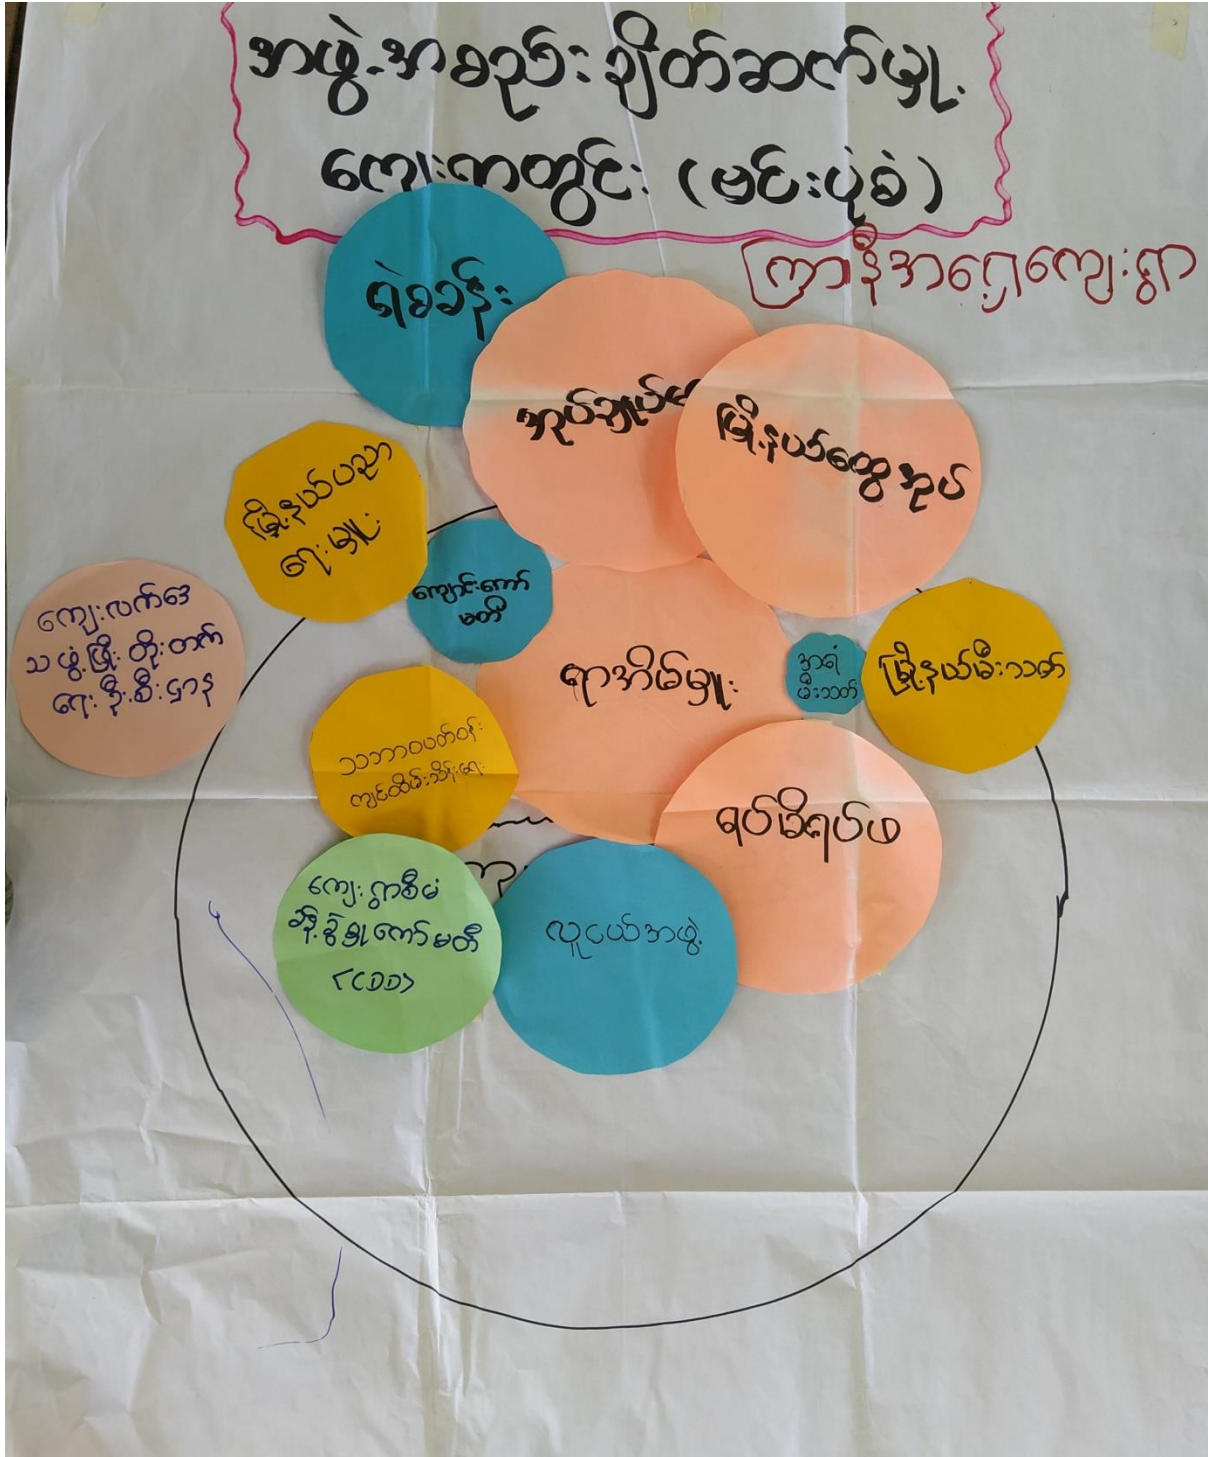 အဖွဲ့အစည်းချိတ်ဆက်မှု
ကျေးရွာတွင်း (မင်းပုံခံ)
ကြာနီအရှေ့ကျေးရွာ
ရဲစခန်း
အုပ်ချုပ်ရေး
မြို့နယ်ထွေအုပ်
မြို့နယ်ပညာ
ရေးမှူး
ကျောင်းကော်
မတီ
ကျေးလက်ဒေ
သဖွံ့ဖြိုးတိုးတက်
ရေးဦးစီးဌာန
ရာအိမ်မှူး
အရံ
မီးသတ်
မြို့နယ်မီးသတ်
သဘာဝပတ်ဝန်း
ကျင်ထိမ်းသိန်းရေး
ရပ်မိရပ်ဖ
ကျေးရွာစီမံ
ခန့်ခွဲမှုကော်မတီ
<CDD>
လူငယ်အဖွဲ့